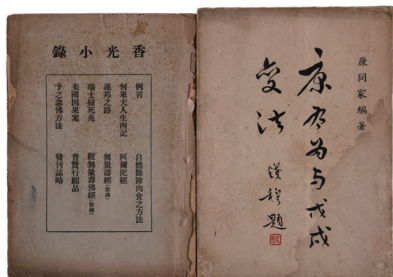 香光小錄
例言
何東夫人生西記
蓮邦之路
美國因果案
予之念佛方法
自然斷除肉食之方法
阿彌陀經
無量壽經
觀無量壽佛經
普賢行願品
發刊誌略
康同家編著
康有為与戊戌
变法
題